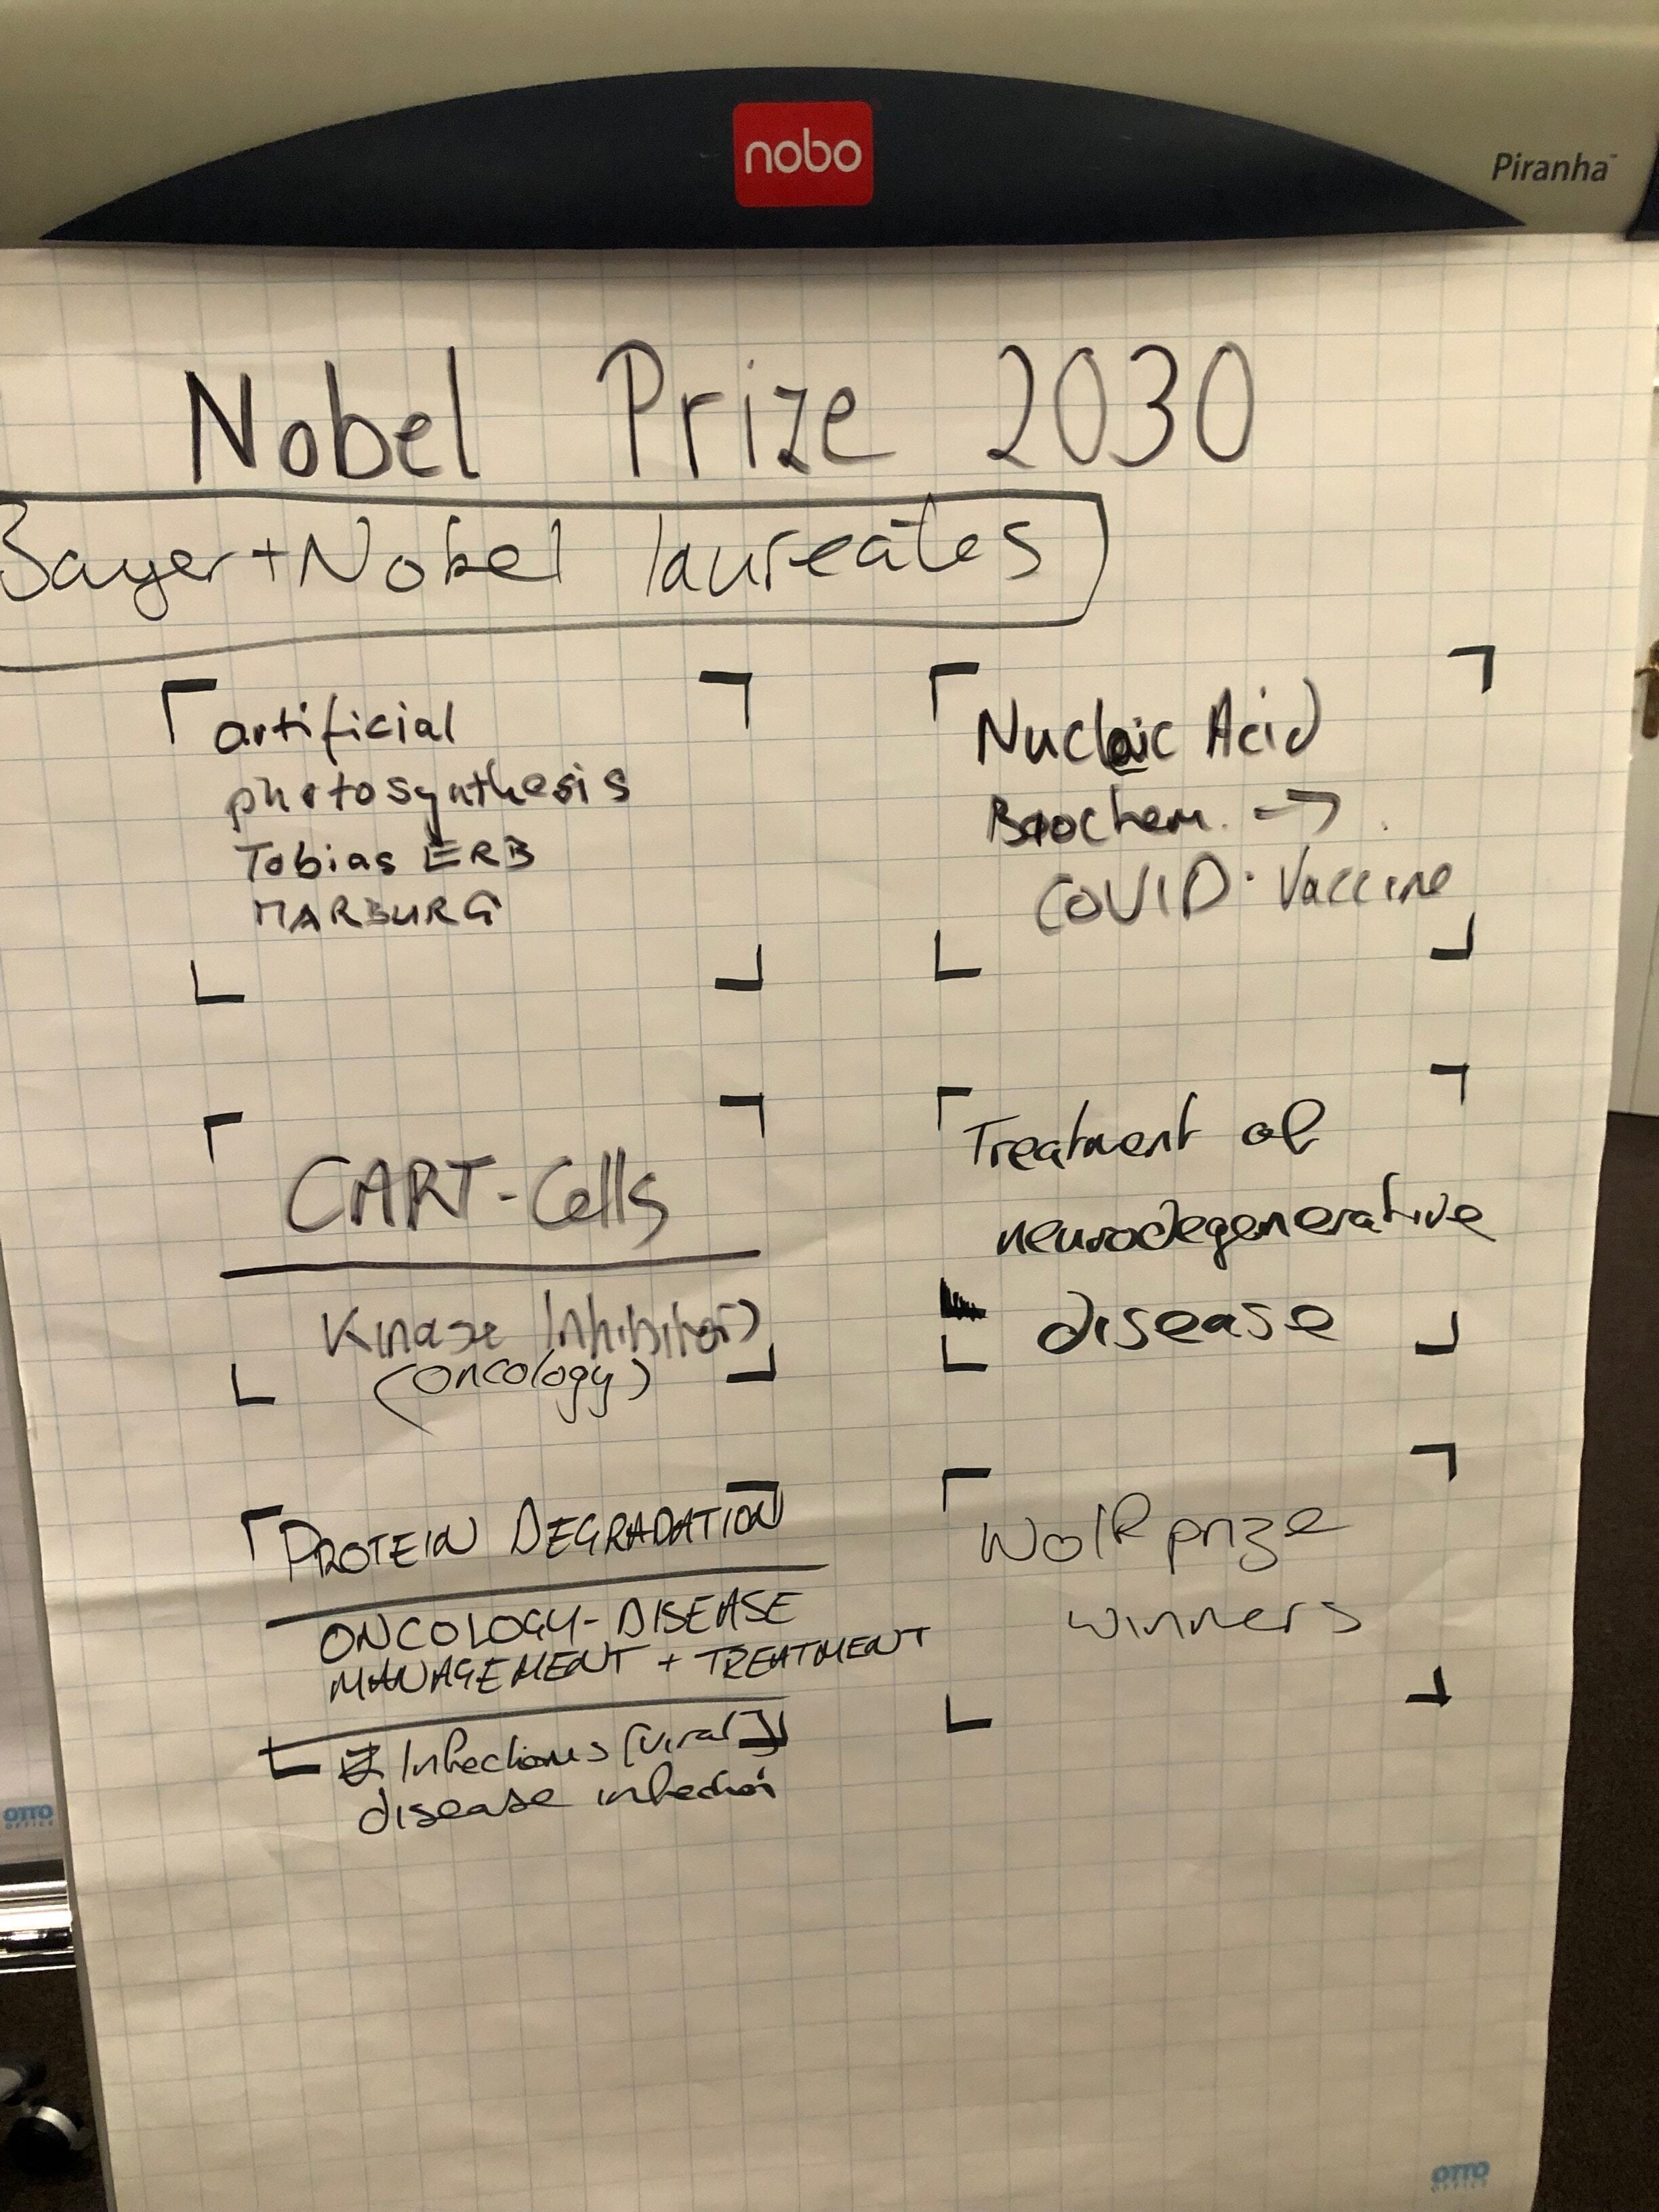 nobo
Piranha™
Nobel Prize 2030
Bayer + Nobel laureates
artificial
photosynthesis
Tobias ERB
MARBURG
Nucleic Acid
Biochem. →
COVID-Vaccine
CART-Cells
Kinase Inhibitors
(oncology)
Treatment of
neurodegenerative
disease
PROTEIN DEGRADATION
ONCOLOGY-DISEASE
MANAGEMENT + TREATMENT
Infectious (viral)
disease infection
Wolf prize
winners
OTTO
OFFICE
OTTO
OFFICE